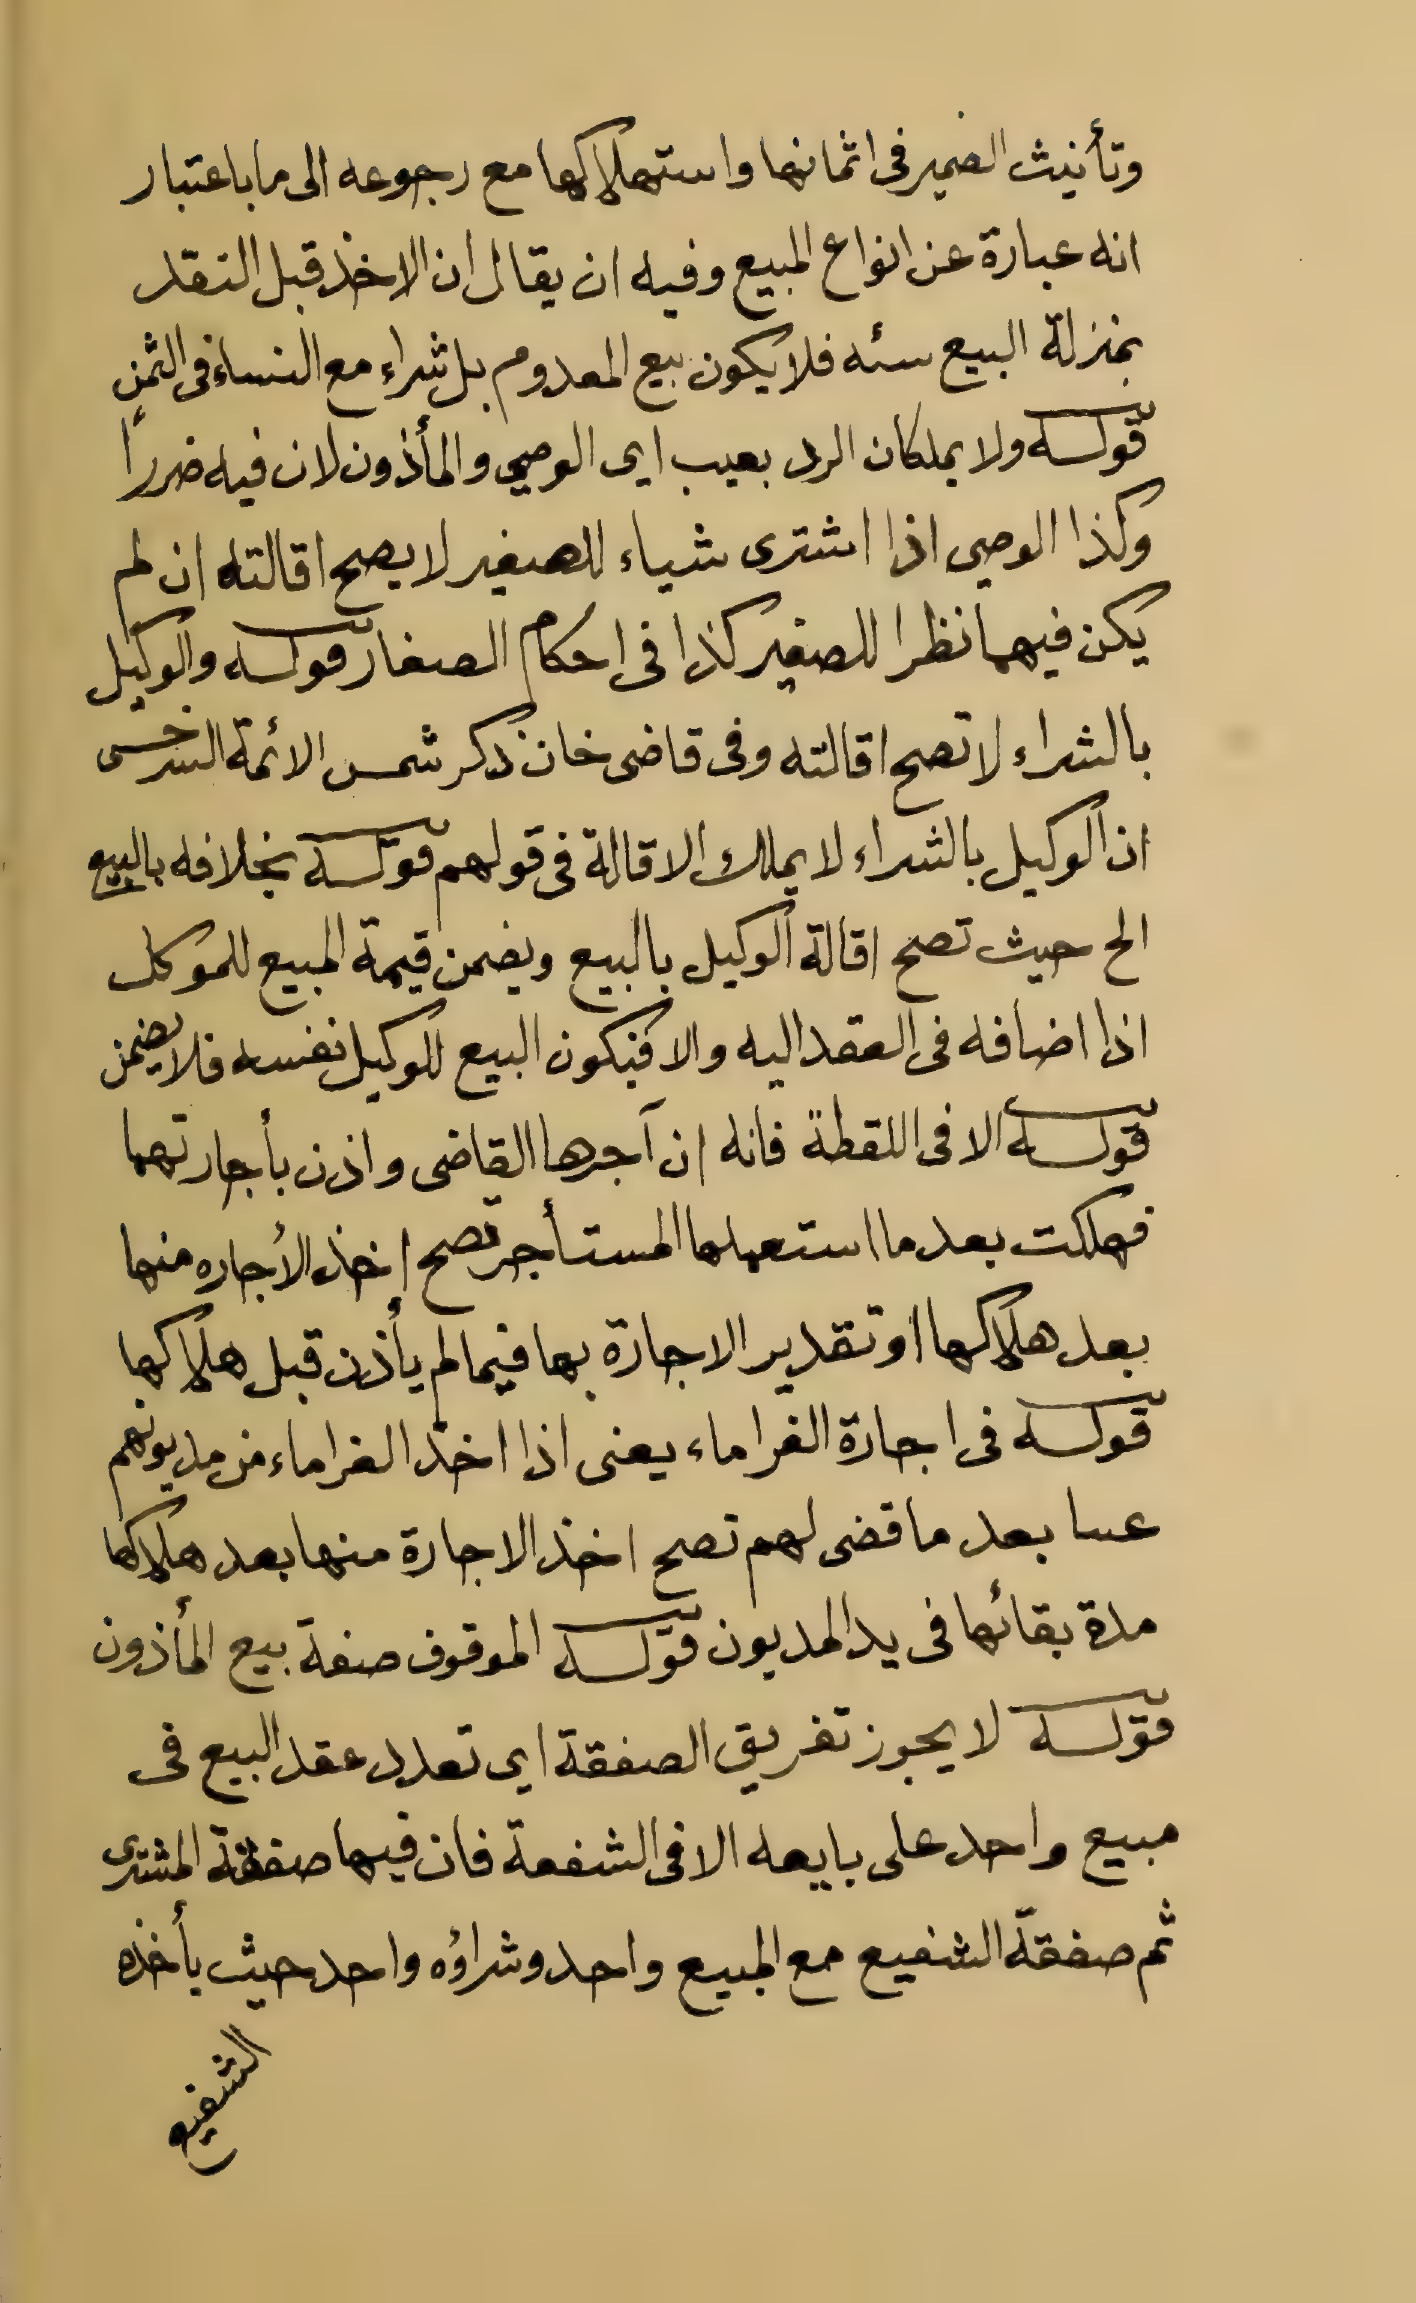 وتأنيث الضمير فى اثمانها واستهلاكها مع رجوعه الى ما باعتبار
انه عبارة عن انواع المبيع وفيه ان يقال ان الاخذ قبل النقد
بمنزلة البيع سئه فلا يكون بيع المعدوم بل شراء مع النساء فى الثمن
قوله ولا يملكان الرد بعيب اى الوصى والمأذون لان فيه ضررًا
وكذا الوصى اذا اشترى شياء للصغير لا يصح اقالته ان لم
يكن فيها نظرا للصغير كذا فى احكام الصغار قوله والوكيل
بالشراء لا تصح اقالته وفى قاضى خان ذكر شمس الائمة السرخسى
ان الوكيل بالشراء لا يملك الاقالة فى قولهم قوله بخلافه بالبيع
الح حيث تصح اقالة الوكيل بالبيع ويضمن قيمة المبيع للموكل
اذا اضافه فى العقد اليه والا فيكون البيع للوكيل نفسه فلا يضمن
قوله الا فى اللقطة فانه ان آجرها القاضى واذن بأجارتها
فهلكت بعد ما استعملها المستأجر تصح اخذ الأجاره منها
بعد هلاكها او تقدير الاجارة بها فيما لم يأذن قبل هلاكها
قوله فى اجارة الغراماء يعنى اذا اخذ الغراماء من مديونهم
بعد ما قضى لهم تصح اخذ الاجارة منها بعد هلاكها
مدة بقائها فى يد المديون قوله الموقوف صفة بيع المأذون
قوله لا يجوز تفريق الصفقة اى تعدد عقد البيع فى
مبيع واحد على بايعه الا فى الشفعة فان فيها صفقة المشترى
ثم صفقة الشفيع مع المبيع واحد وشراؤه واحد حيث يأخذه
الشفيع